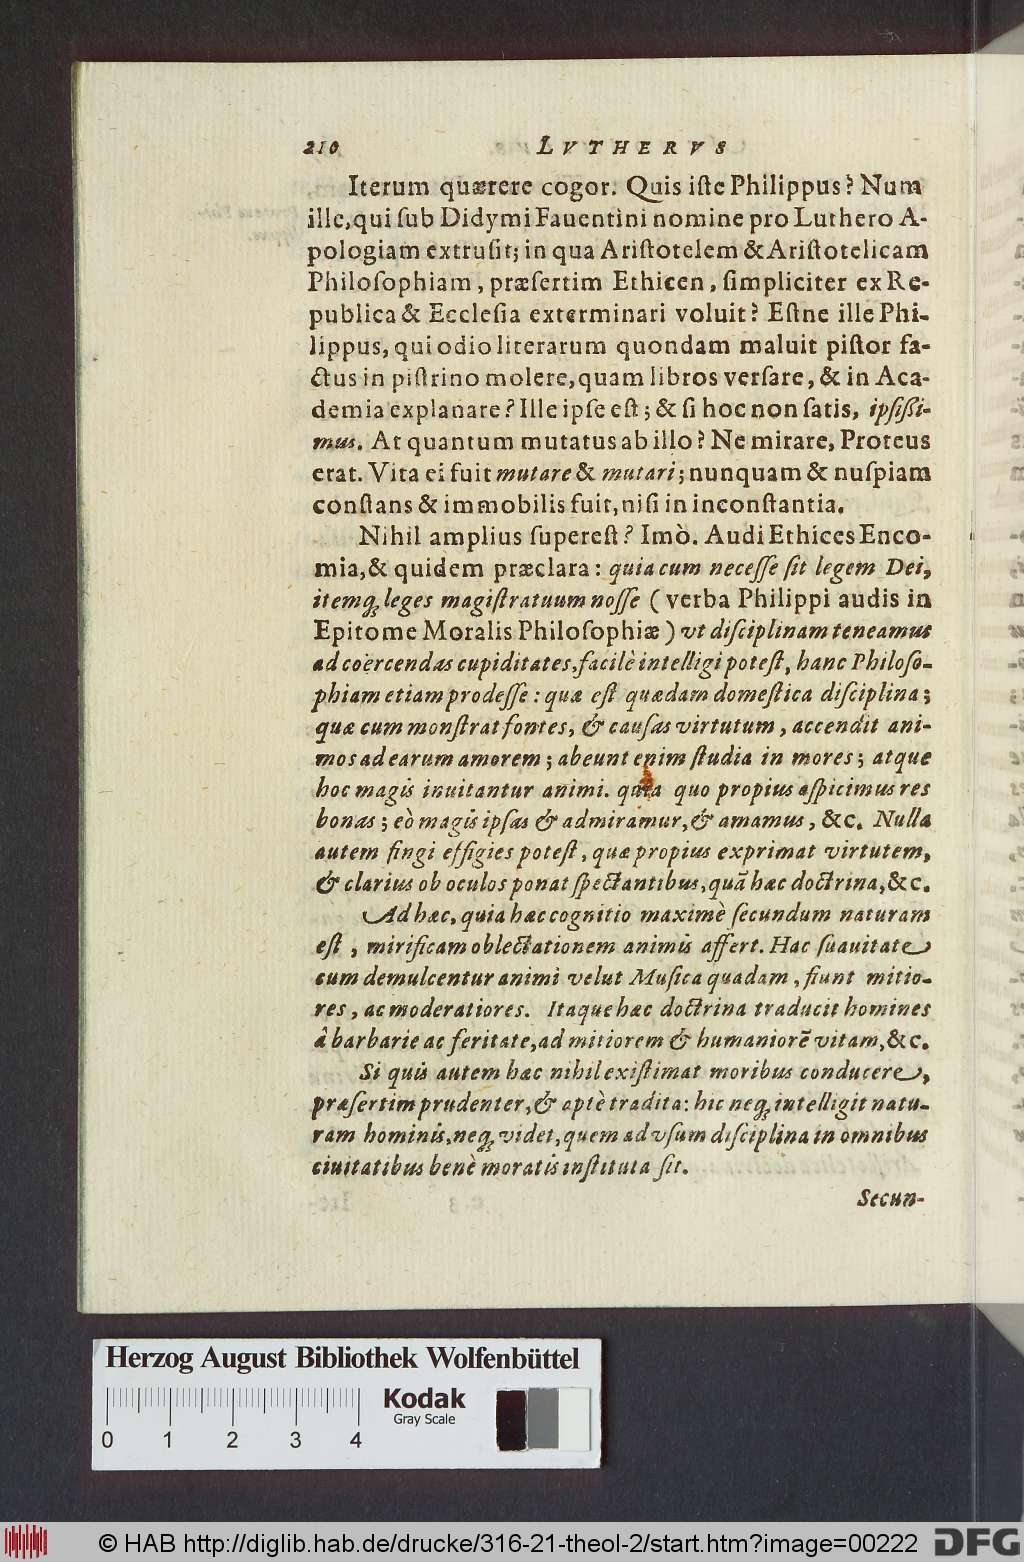 210 LVTHERVS
Iterum quærere cogor. Quis iſte Philippus? Num
ille, qui ſub Didymi Fauentini nomine pro Luthero A-
pologiam extruſit; in qua Ariſtotelem & Ariſtotelicam
Philoſophiam, præſertim Ethicen, ſimpliciter ex Re-
publica & Eccleſia exterminari voluit? Eſtne ille Phi-
lippus, qui odio literarum quondam maluit piſtor fa-
ctus in piſtrino molere, quam libros verſare, & in Aca-
demia explanare? Ille ipſe eſt; & ſi hoc non ſatis, ipſißi-
mus. At quantum mutatus ab illo? Ne mirare, Proteus
erat. Vita ei fuit mutare & mutari; nunquam & nuſpiam
conſtans & immobilis fuit, niſi in inconſtantia.
Nihil amplius ſupereſt? Imò. Audi Ethices Enco-
mia, & quidem præclara: quia cum neceſſe ſit legem Dei,
itemq́; leges magiſtratuum noſſe (verba Philippi audis in
Epitome Moralis Philoſophiæ) vt diſciplinam teneamus
ad coërcendas cupiditates, facilè intelligi poteſt, hanc Philoſo-
phiam etiam prodeſſe: quæ eſt quædam domeſtica diſciplina;
quæ cum monſtrat fontes, & cauſas virtutum, accendit ani-
mos ad earum amorem; abeunt enim ſtudia in mores; atque
hoc magis inuitantur animi. quia quo propius aſpicimus res
bonas; eò magis ipſas & admiramur, & amamus, &c. Nulla
autem fingi effigies poteſt, quæ propius exprimat virtutem,
& clarius ob oculos ponat ſpectantibus, quā hæc doctrina, &c.
Ad hæc, quia hæc cognitio maximè ſecundum naturam
eſt, mirificam oblectationem animis affert. Hac ſuauitate
cum demulcentur animi velut Muſica quadam, fiunt mitio-
res, ac moderatiores. Itaque hæc doctrina traducit homines
â barbarie ac feritate, ad mitiorem & humaniorē vitam, &c.
Si quis autem hæc nihil exiſtimat moribus conducere,
præſertim prudenter, & aptè tradita: hic neq́; intelligit natu-
ram hominis, neq́; videt, quem ad vſum diſciplina in omnibus
ciuitatibus benè moratis inſtituta ſit.
Secun-
Herzog August Bibliothek Wolfenbüttel
Kodak
Gray Scale
0 1 2 3 4
© HAB http://diglib.hab.de/drucke/316-21-theol-2/start.htm?image=00222
DFG